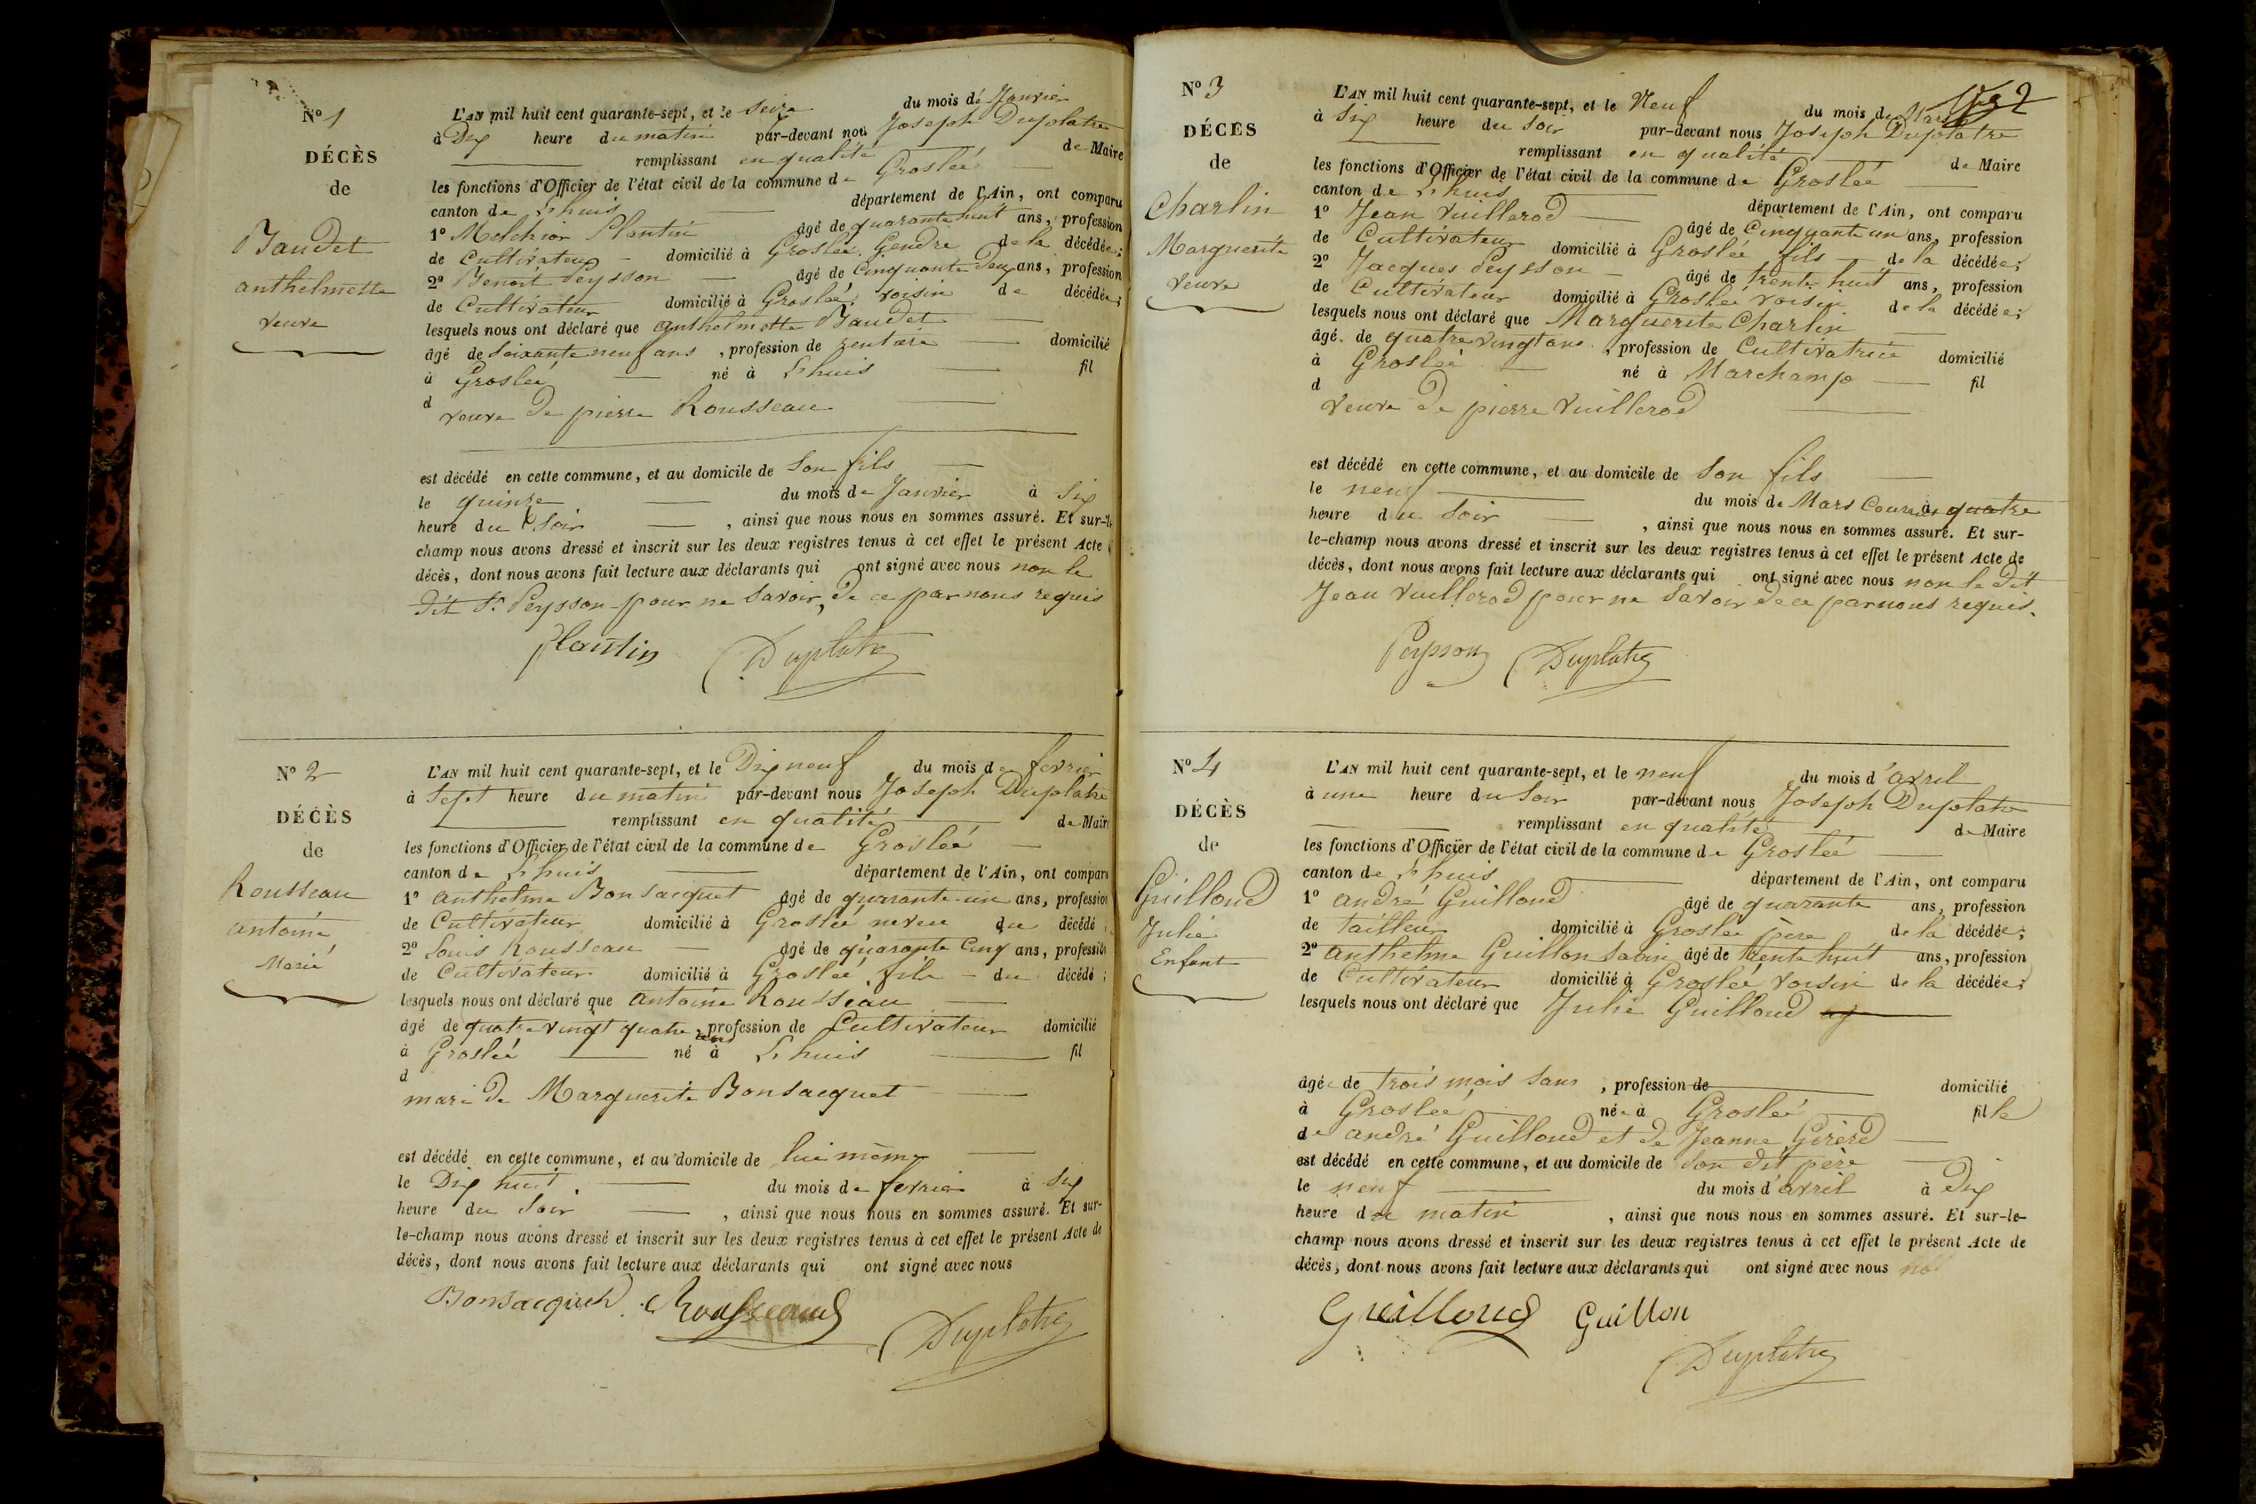 N° 1
DÉCÈS
de
Baudet
anthelmette
veuve
L'AN mil huit cent quarante-sept, et le seize du mois de Janvier
à Dix heure du matin par-devant nous Joseph Duplatre
remplissant en qualité de Maire
les fonctions d'Officier de l'état civil de la commune de Groslée
canton de Lhuis département de l'Ain, ont comparu
1° Melchior Plantin âgé de quarante huit ans, profession
de Cultivateur domicilié à Groslée Gendre de la décédée;
2° Benoit Peysson âgé de Cinquante Deux ans, profession
de Cultivateur domicilié à Groslée voisin de décédée;
lesquels nous ont déclaré que anthelmette Baudet
âgé de Soixante neuf ans, profession de rentière domicilié
à Groslée né à Lhuis fil
d veuve de pierre Rousseau
est décédé en cette commune, et au domicile de Son fils
le quinze du mois de Janvier à Six
heure du Soir, ainsi que nous nous en sommes assuré. Et sur-le
champ nous avons dressé et inscrit sur les deux registres tenus à cet effet le présent Acte
décès, dont nous avons fait lecture aux déclarants qui ont signé avec nous non le
dit Sr Peysson pour ne Savoir, de ce par nous requis
Plantin Duplatre
N° 2
DÉCÈS
de
Rousseau
antoine
Marié
L'AN mil huit cent quarante-sept, et le Dix neuf du mois de fevrier
à Sept heure du matin par-devant nous Joseph Duplatre
remplissant en qualité de Maire
les fonctions d'Officier de l'état civil de la commune de Groslée
canton de Lhuis département de l'Ain, ont comparu
1° anthelme Bonsacquet âgé de quarante-un ans, profession
de Cultivateur domicilié à Groslée neveu du décédé
2° Louis Rousseau âgé de quarante Cinq ans, profession
de Cultivateur domicilié à Groslée fils du décédé;
lesquels nous ont déclaré que antoine Rousseau
âgé de quatre vingt quatre ans, profession de Cultivateur domicilié
à Groslée né à Lhuis fil
d
mari de Marguerite Bonsacquet
est décédé en cette commune, et au domicile de lui même
le Dix huit du mois de fevrier à Six
heure du Soir, ainsi que nous nous en sommes assuré. Et sur-
le-champ nous avons dressé et inscrit sur les deux registres tenus à cet effet le présent Acte de
décès, dont nous avons fait lecture aux déclarants qui ont signé avec nous
Bonsacquet Rousseau Duplatre
N° 3
DÉCÈS
de
Charlin
Marguerite
veuve
2
L'AN mil huit cent quarante-sept, et le Neuf du mois de Mars
à Six heure du Soir par-devant nous Joseph Duplatre
remplissant en qualité de Maire
les fonctions d'Officier de l'état civil de la commune de Groslée
canton de Lhuis département de l'Ain, ont comparu
1° Jean Vuillerod âgé de Cinquante un ans, profession
de Cultivateur domicilié à Groslée fils de la décédée;
2° Jacques Peysson âgé de trente huit ans, profession
de Cultivateur domicilié à Groslée voisin de la décédée;
lesquels nous ont déclaré que Marguerite Charlin
âgé de quatre vingt ans, profession de Cultivatrice domicilié
à Groslée né à Marchamp fil
d
veuve de pierre Vuillerod
est décédé en cette commune, et au domicile de Son fils
le neuf du mois de Mars Courant à quatre
heure du Soir, ainsi que nous nous en sommes assuré. Et sur-
le-champ nous avons dressé et inscrit sur les deux registres tenus à cet effet le présent Acte de
décès, dont nous avons fait lecture aux déclarants qui ont signé avec nous non le dit
Jean Vuillerod pour ne Savoir de ce par nous requis.
Peysson Duplatre
N° 4
DÉCÈS
de
Guilloud
Julie
Enfant
L'AN mil huit cent quarante-sept, et le neuf du mois d'avril
à une heure du Soir par-devant nous Joseph Duplatre
remplissant en qualité de Maire
les fonctions d'Officier de l'état civil de la commune de Groslée
canton de Lhuis département de l'Ain, ont comparu
1° andré Guilloud âgé de quarante ans, profession
de tailleur domicilié à Groslée père de la décédée;
2° anthelme Guillon Savin âgé de trente huit ans, profession
de Cultivateur domicilié à Groslée voisin de la décédée;
lesquels nous ont déclaré que Julie Guilloud
âgée de trois mois sans, profession de domicilié
à Groslée née à Groslée fille
de andré Guilloud et de Jeanne Girerd
est décédé en cette commune, et au domicile de Son dit père
le neuf du mois d'avril à Dix
heure du matin, ainsi que nous nous en sommes assuré. Et sur-le-
champ nous avons dressé et inscrit sur les deux registres tenus à cet effet le présent Acte de
décès, dont nous avons fait lecture aux déclarants qui ont signé avec nous
Guilloud Guillon
Duplatre